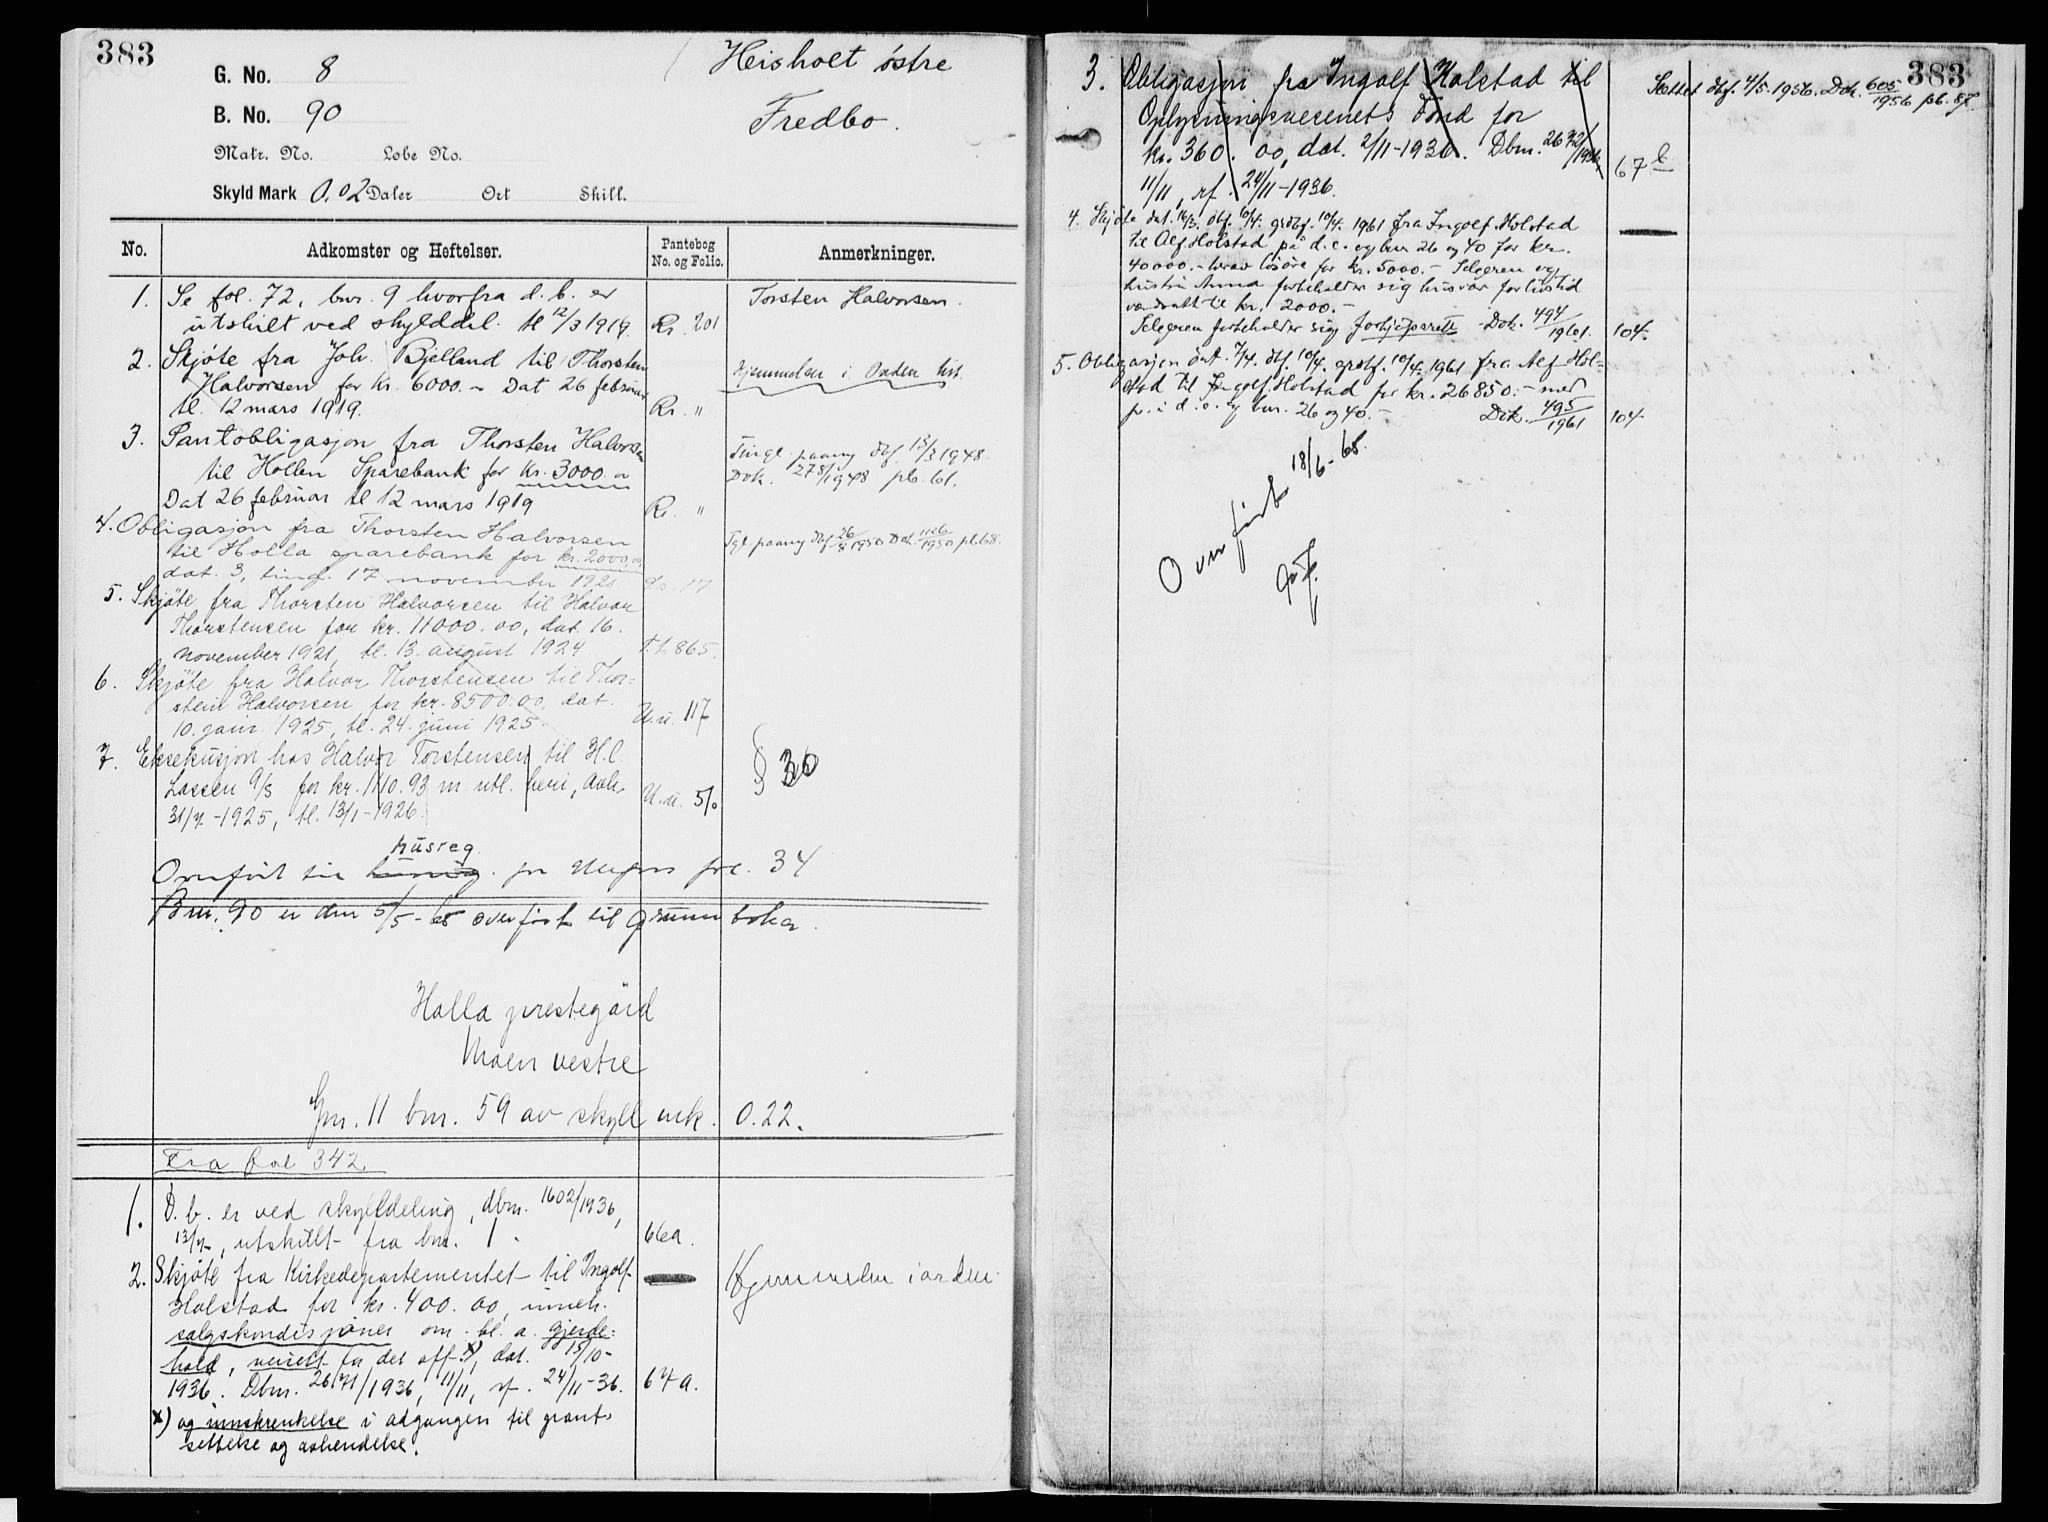 383
G. No. 8
Heisholt østre
B. No. 90
Fredbo.
Matr. No. Løbe No.
Skyld Mark 0,02 Daler Ort Skill.
No. Adkomster og Heftelser. Pantebog No. og Folio. Anmerkninger.
1. Se fol. 72, bnr. 9 hvorfra d. b. er
utskilt ved skylddel. tl 12/3 1919. Rr. 201
Torsten Halvorsen.
2. Skjøte fra Joh. Bjelland til Thorsten
Halvorsen for kr. 6000.- Dat 26 februar
tl. 12 mars 1919. Rr. "
Hjemmelen i Orden
3. Pantobligasjon fra Thorsten Halvorsen
til Hollen Sparebank for kr. 3000.-
Dat 26 februar tl 12 mars 1919 Rr. "
Tingl. paany dbf 13/3 1948
Dok. 278/1948 pb. 61.
4. Obligasjon fra Thorsten Halvorsen
til Holla sparebank for kr. 2000,00,
dat. 3, tingl. 17 november 1920
Tgl. paany dbf 26/8 1950 Dok. 1126/1950 pb. 68.
5. Skjøte fra Thorsten Halvorsen til Halvor
Thorstensen for kr. 11000.00, dat. 16.
november 1921, tl. 13. august 1924 T.t. 865.
6. Skjøte fra Halvor Thorstensen til Thor=
stein Halvorsen for kr. 8500.00, dat.
10. juni 1925, tl. 24. juni 1925. U.u. 117
7. Eksekusjon hos Halvor Torstensen til H.C.
Lassen A/S for kr. 1110.93 m. utl. heri, avh.
31/7-1925, tl. 13/1-1926. U.u. 510
§ 36
husreg.
Overført til for fol. 34
Bnr. 90 er den 5/5-65 overført til grunnboka.
Holla prestegård
Moen vestre
Gnr. 11 bnr. 59 av skyll mk. 0.22.
Fra fol 342
1. D. b. er ved skylddeling, dbnr. 1602/1936,
13/7, utskillt fra bnr. 1. 66a.
2. Skjøte fra Kirkedepartementet til Ingolf
Holstad for kr. 400.00, inneh.
salgskondisjoner om bl. a. gjerde=
hold, veirett for det off. x), dat. 15/10-
1936. Dbnr. 2671/1936, 11/11, rf. 24/11-36. 67a.
Hjemmelen i orden.
x) og innskrenkelse i adgangen til pant-
settelse og avhendelse.
383
3. Obligasjon fra Ingolf Holstad til
Oplysningsvesenets Fond for
kr. 360.00, dat. 2/11-1936. Dbnr. 2672/1936,
11/11, rf. 24/11-1936. 67b
Slettet dbf. 4/5.1956. Dok. 605/1956 pb. 87.
4. Skjøte dat. 16/3. dbf. 10/4. grdbf. 10/4. 1961 fra Ingolf Holstad
til Alf Holstad på d.e. og bnr 26 og 40 for kr.
40000.- herav løsøre for kr. 5000.- Selgeren og
hustru Anna forbeholder sig husvær for livstid
verdsatt til kr. 2000.-
Selgeren forbeholder sig forkjøpsrett Dok. 494/1961. 104.
5. Obligasjon dat. 7/4. dbf. 10/4. grdbf. 10/4 1961 fra Alf Hol=
stad til Ingolf Holstad for kr. 26850.- med
p. i d. e. og bnr. 26 og 40.- Dok. 495/1961 104.
Overført 18/6-65.